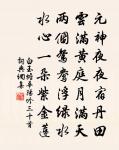 元神夜夜宿丹田
雲滿黃庭月滿天
兩個鴛鴦浮綠水
水心一朵紫金蓮
白玉蟾華陽吟三十首